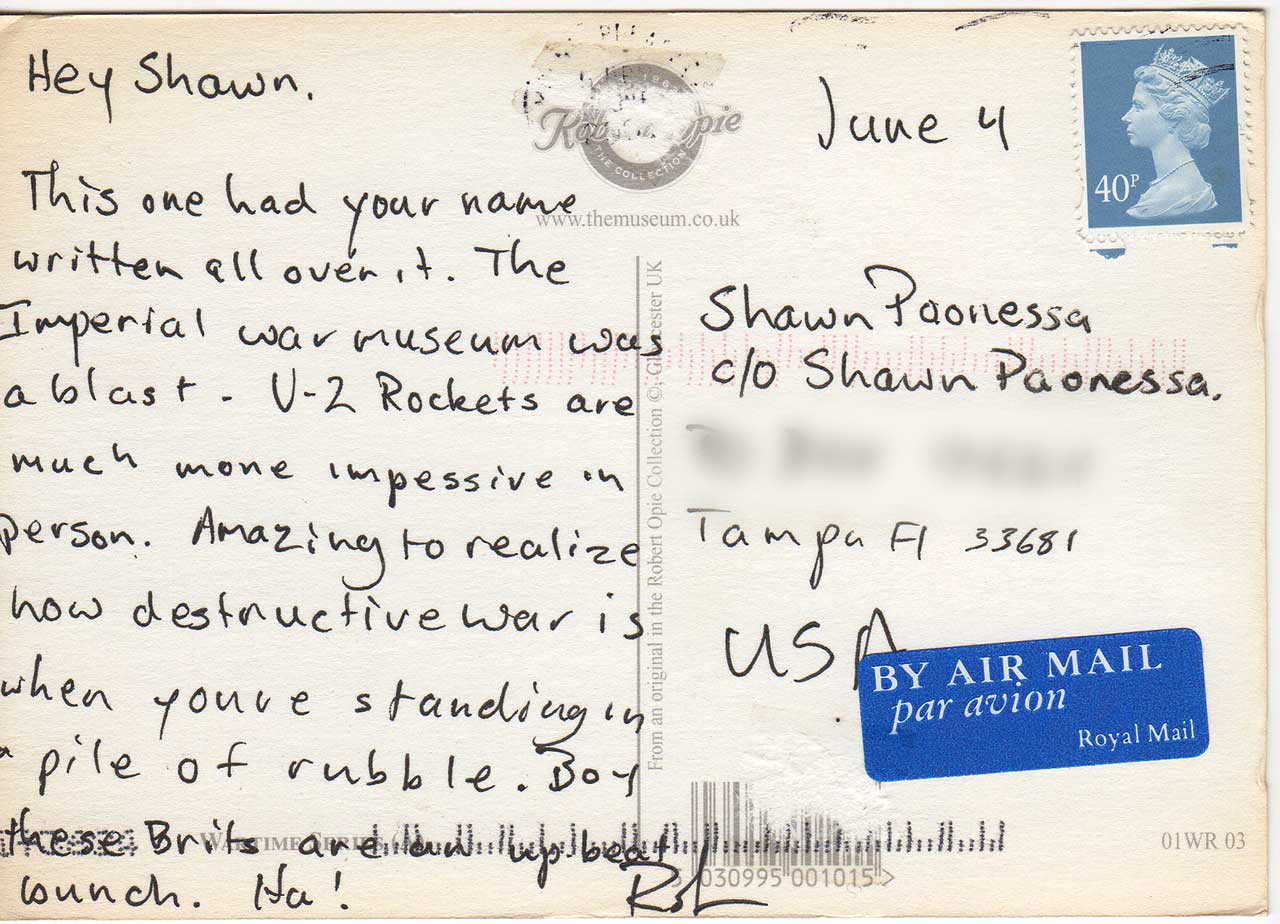 Hey Shawn.
June 4
40P
THE COLLECTION
www.themuseum.co.uk
This one had your name
written all over it. The
Imperial war museum was
a blast. U-2 Rockets are
much more impessive in
person. Amazing to realize
how destructive war is
when youre standing in
a pile of rubble. Boy
these Brits are an up beat
bunch. Ha!
From an original in the Robert Opie Collection ©, Gloucester UK
Shawn Paonessa
c/o Shawn Paonessa.
Tampa Fl 33681
USA
BY AIR MAIL
par avion
Royal Mail
WARTIME SERIES
01WR 03
5 030995 001015 >